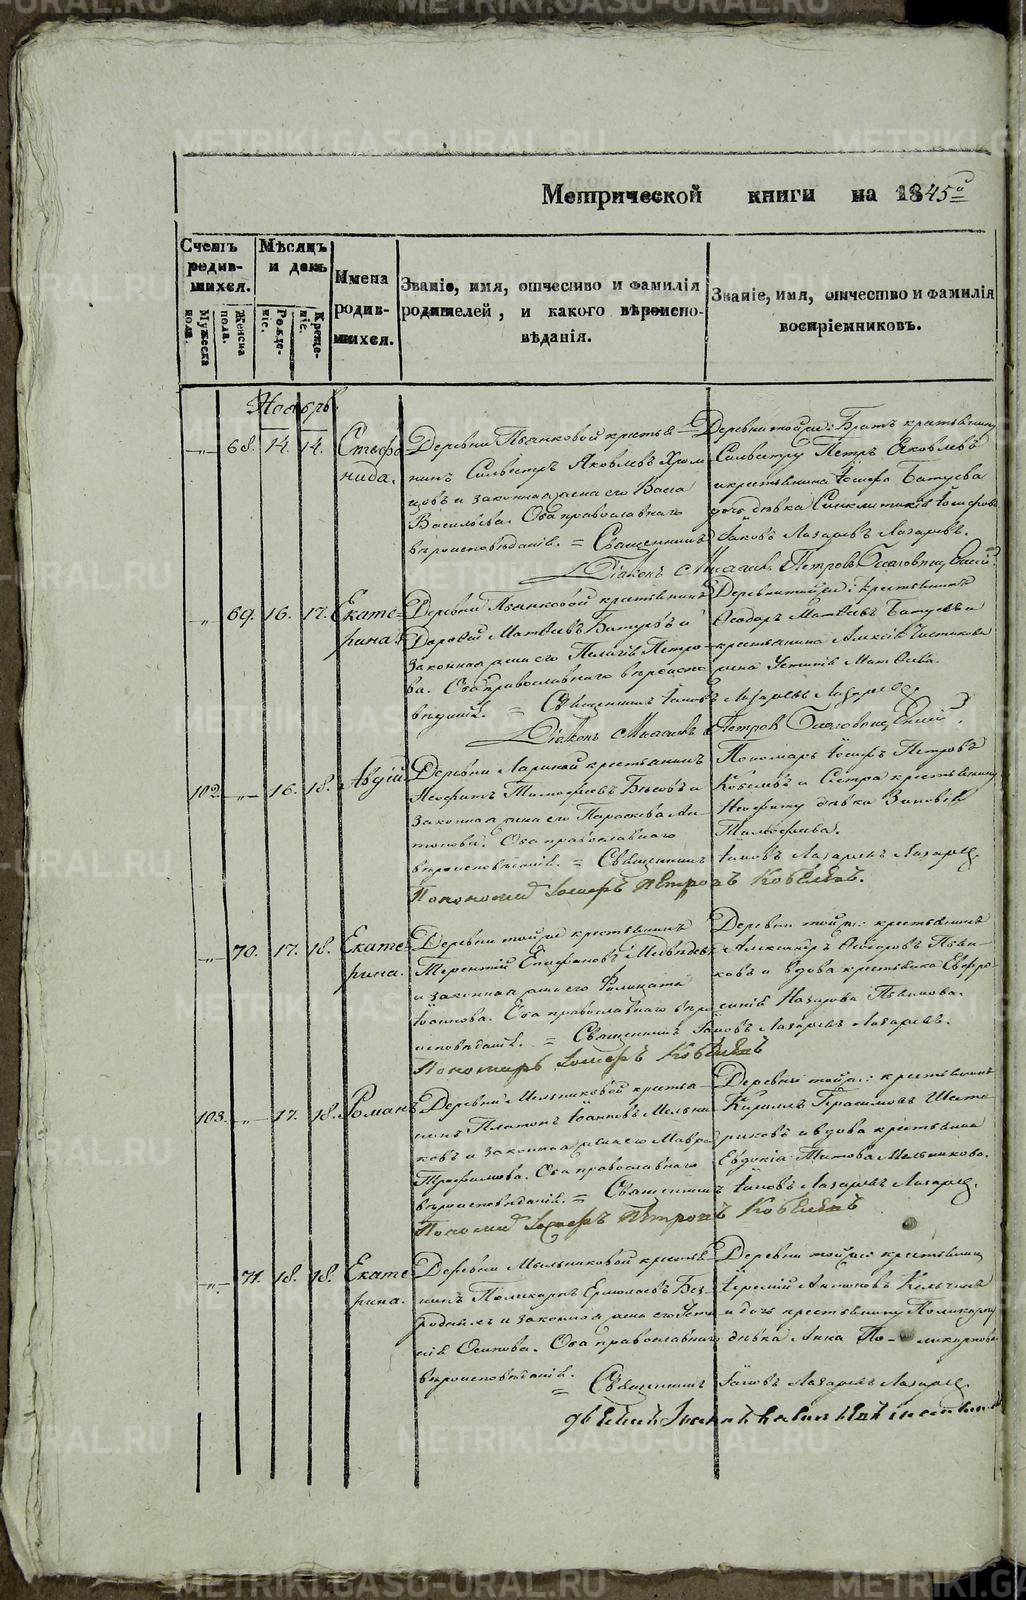 METRIKI.GASO-URAL.RU
Метрической книги на 1845й
Счетъ родив-шихся.
Мужеска пола.
Женска пола.
Мѣсяцъ и день
Рожде-ніе.
Креще-ніе.
Имена родив-шихся.
Званіе, имя, отчество и фамилія родителей, и какого вѣроиспо-вѣданія.
Званіе, имя, отчество и фамилія воспріемниковъ.
Ноябрь.
—„— 68. 14. 14. Стефа-нида.
Деревни Пьянковой крестья-
нинъ Силвестръ Яковлевъ
и законная жена его Васса
Васильева. Оба православнаго
вѣроисповѣданія. = Священникъ Іаковъ Лазаревъ Лазаревъ.
Деревни тойже: Братъ крестьянину
Силвестру Петръ Яковлевъ
и крестьянина Іосифа Батуева
дочь дѣвка Синклитикія Іосифова
Діаконъ Петровъ
—„— 69. 16. 17. Екате-рина.
Деревни Пьянковой крестьянинъ
Дорофей Матвѣевъ Батуевъ и
законная жена его Пелагія Петро-
ва. Оба православнаго вѣроиспо-
вѣданія. = Священникъ Іаковъ Лазаревъ Лазаревъ.
Деревни тойже: крестьянинъ
Ѳеодоръ Матвѣевъ Батуевъ и
крестьянина Алексія Чистякова
жена Устинія Матвѣева.
Діаконъ Петровъ
102. —„— 16. 18. Авдій
Деревни Лариной крестьянинъ
Неофитъ Тимофеевъ и
законная жена его Параскева Ан-
тонова. Оба православнаго
вѣроисповѣданія. = Священникъ Іаковъ Лазаревъ Лазаревъ.
Пономарь Іосифъ Петровъ
Кобелевъ и Сестра крестьянину
Неофиту дѣвка Зиновія
Тимофеева.
Пономарь Іосифъ Петровъ Кобелевъ.
—„— 70. 17. 18. Екате-рина.
Деревни тойже крестьянинъ
Терентій Епифановъ Медвѣдевъ
и законная жена его Филицата
Іоаннова. Оба православнаго вѣро-
исповѣданія. = Священникъ Іаковъ Лазаревъ Лазаревъ.
Деревни тойже: крестьянинъ
Александръ Ѳедоровъ Пьян-
ковъ и вдова крестьянка Евфро-
синія Назарова Пьянкова.
Пономарь Іосифъ Кобелевъ
103. —„— 17. 18. Романъ
Деревни Мельниковой крестья-
нинъ Платонъ Іоанновъ Мельни-
ковъ и законная жена его Мавра
Трофимова. Оба православнаго
вѣроисповѣданія. = Священникъ Іаковъ Лазаревъ Лазаревъ.
Деревни тойже: крестьянинъ
Кириллъ Герасимовъ
и вдова крестьянка
Евдокія Титова Мельникова.
Пономарь Іосифъ Петровъ Кобелевъ
—„— 71. 18. 18. Екате-рина.
Деревни Мельниковой крестья-
нинъ Поликарпъ Ермолаевъ Без-
родныхъ и законная жена его Усти-
нія Осипова. Оба православнаго
вѣроисповѣданія.
= Священникъ Іаковъ Лазаревъ Лазаревъ
Деревни тойже: крестьянинъ
Іеремій Антоновъ
и дочь крестьянину Поликарпу
дѣвка Анна По-ликарпова